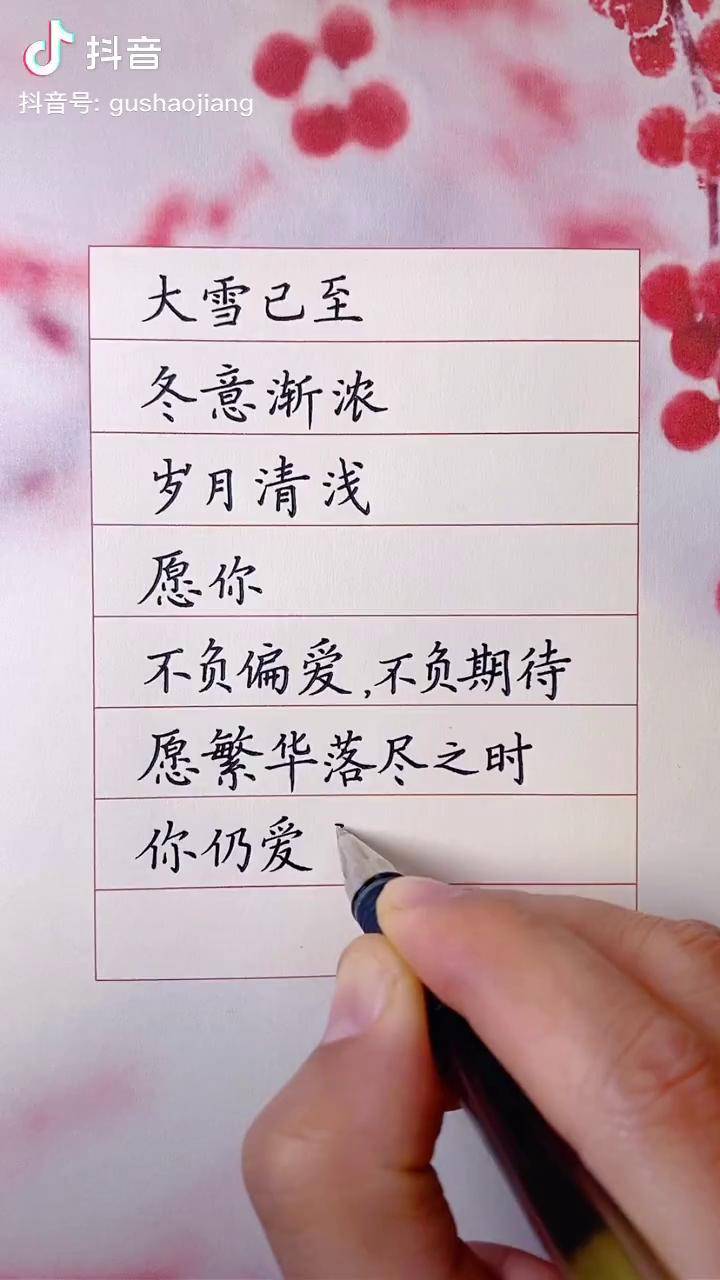 抖音
抖音号: gushaojiang
大雪已至
冬意渐浓
岁月清浅
愿你
不负偏爱,不负期待
愿繁华落尽之时
你仍爱